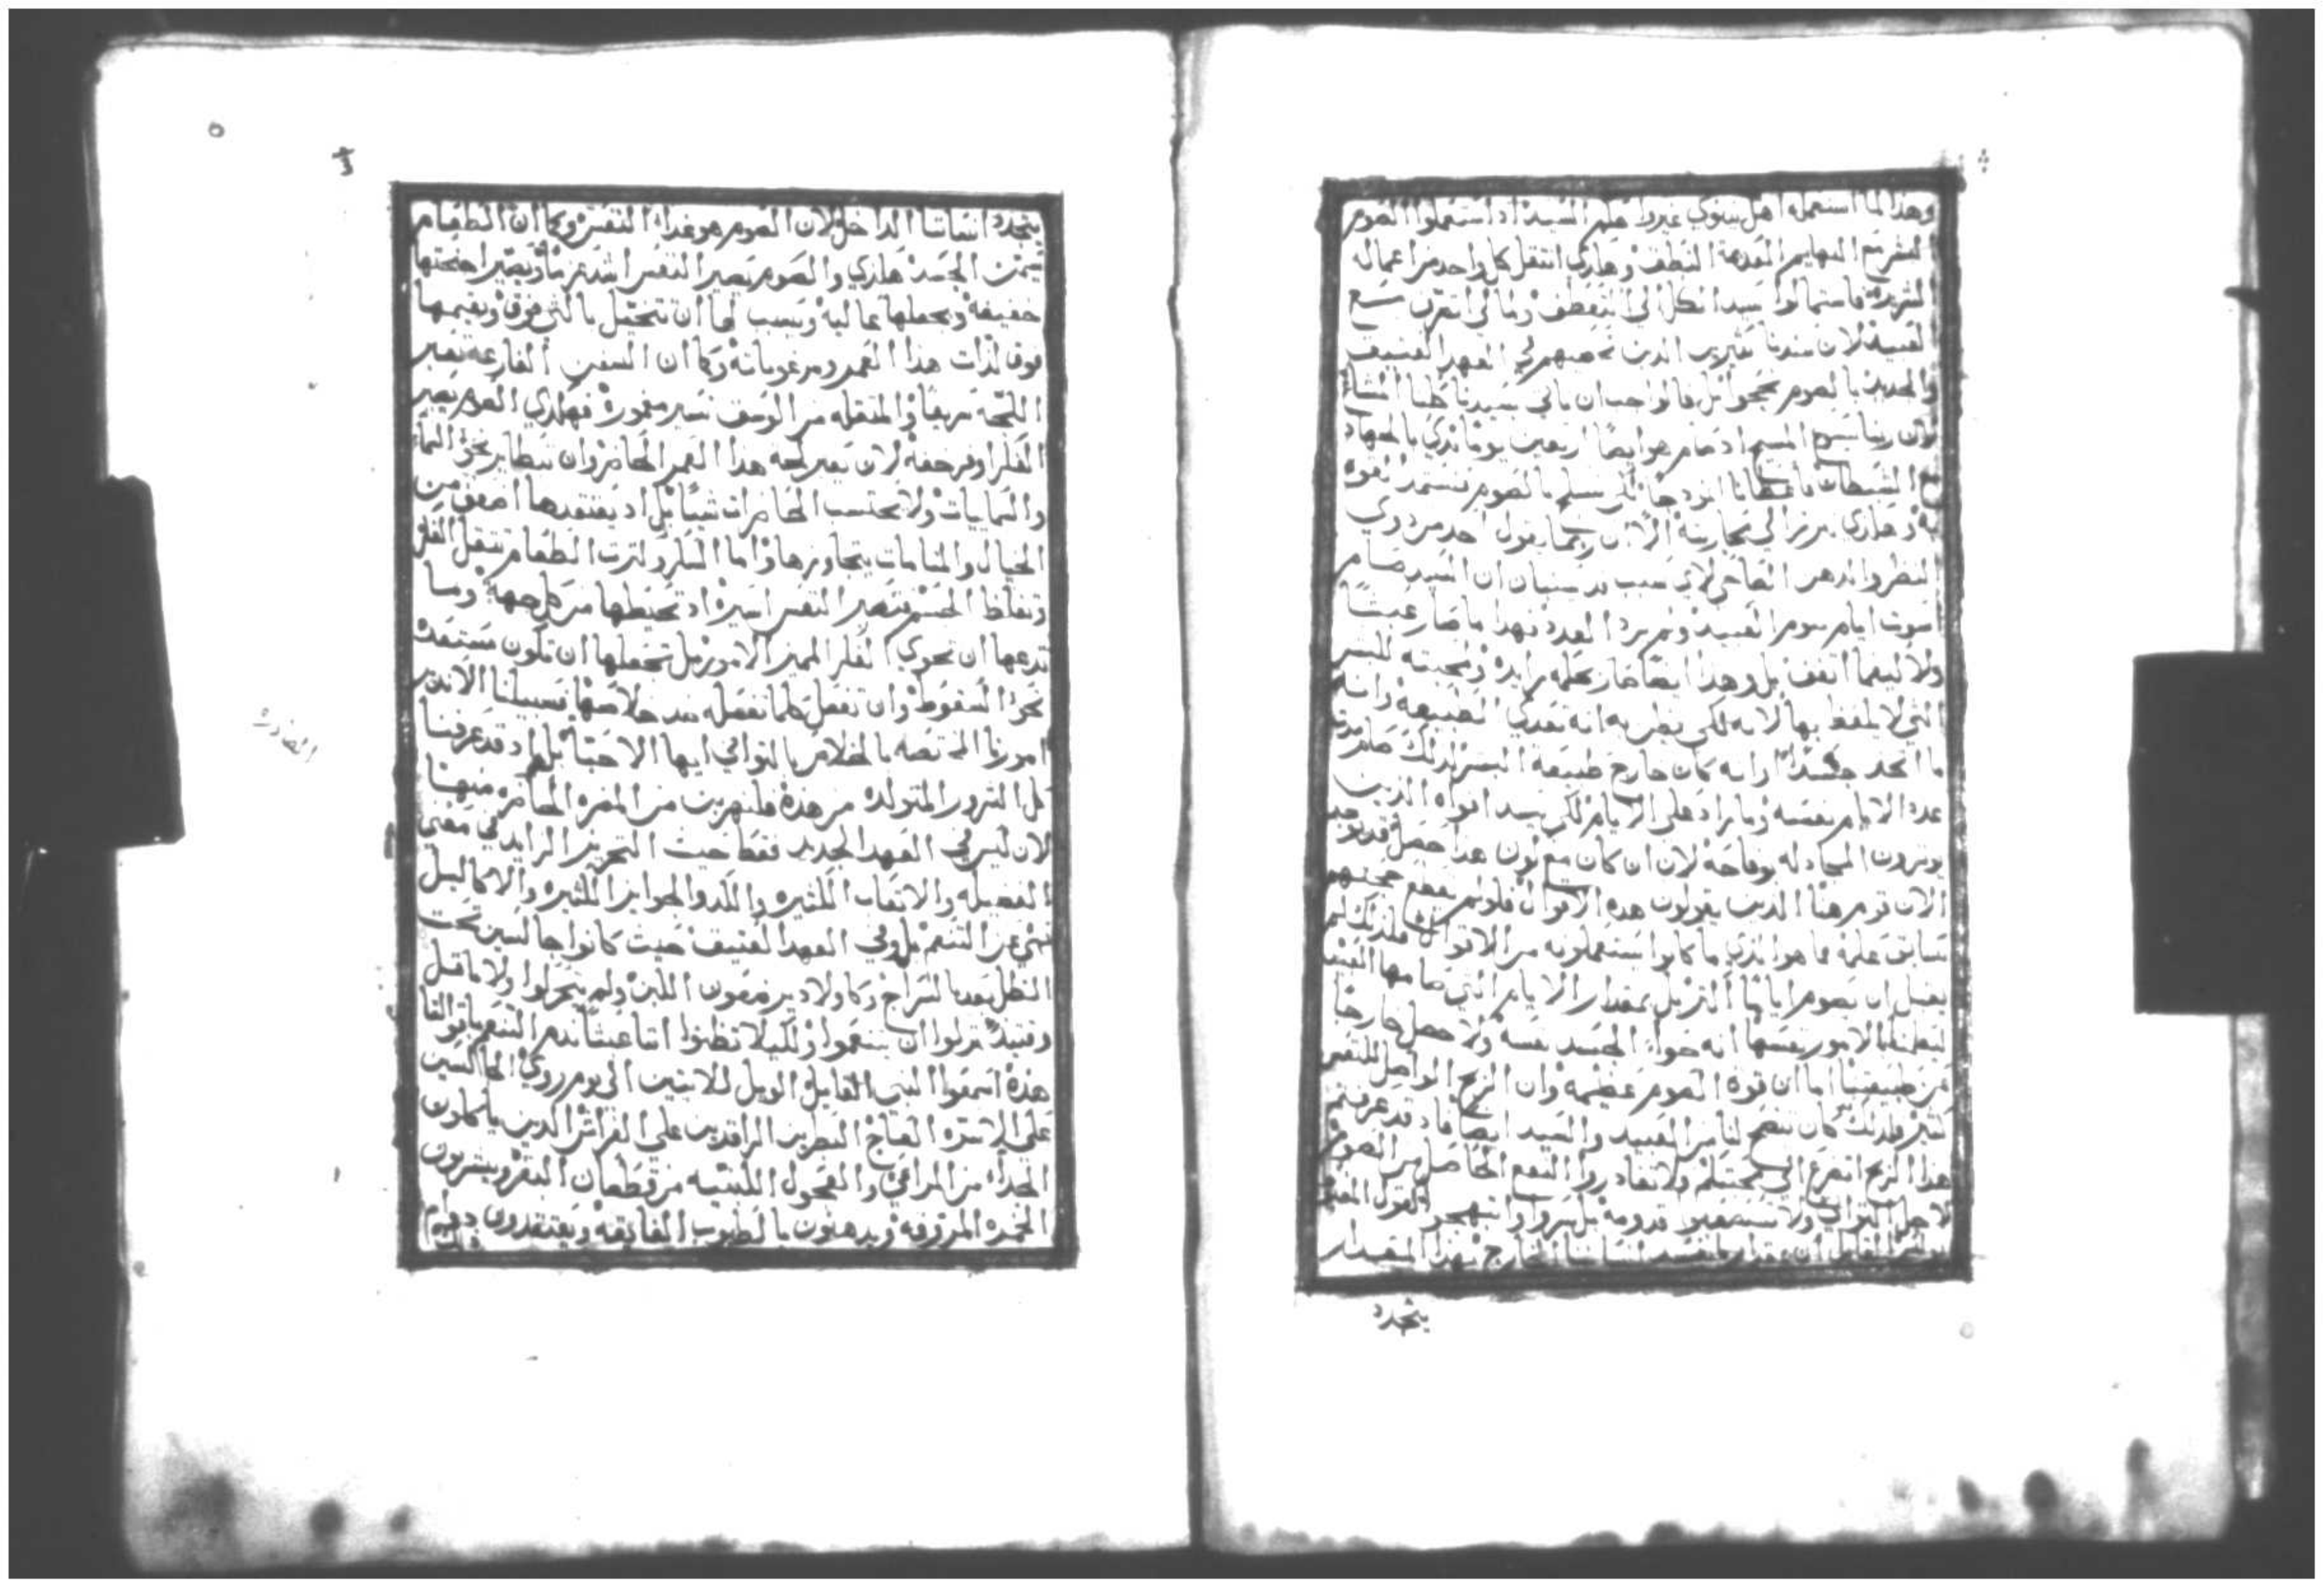 وهذا لما استعمله اهل نينوي غيروا حكم السيد اذ استعملوا الصوم
البشر مع البهايم العديمة النطق وهكذي انتقل كل واحد من اعماله
الشريره فاستمالوا سيد الكل الي التعطف وما لي اتقرن مع
العبيد لان عندنا كثيرين الذين تجدهم في العهد العتيق
والجديد بالصوم نجحوا بل فالواجب ان ياتي سيدنا كلنا المشاع
لان ربنا يسوع المسيح اذ صام هو ايضًا اربعين يومًا بدي بالجهاد
مع الشيطان فاعطانا انموذجًا لكي نتسلح بالصوم فنستمد القوه
به وهكذي نبرز الي محاربته الا ان ربما يقول احد من ذوي
النظر والذهن الفاحص لاي سبب ان السيد صام
ايام العبيد ولم يزد العدد فهذا ما صار عبثًا
ولا كيفما اتفق بل وهذا ايضًا صار بحكمه زايده ومحبته للبشر
التي لا يلفظ بها لانه لكي يظن به انه تعدي الطبيعه وانه
ما اتخذ جسدًا وانه كان خارج طبيعة البشر لذلك صام
عدد الايام نفسه وما زاد علي الايام لكي يسد افواه الذين
يوثرون المجادله بوقاحة لان ان كان مع كون هذا حصل قد يوجد
الان قوم هنا الذين يقولون هذه الاقوال فلو لم يقطع حجتهم
سابق علمه فما هو الذي ما كانوا يستعملونه من الاقوال فلذلك لم
يقبل ان يصوم ايامًا اكثر بل بمقدار الايام التي صامها العبيد
ليعلمنا بالامور نفسها انه حوا الجسد نفسه ولا حصل خارجًا
عن طبيعتنا اما ان قوة الصوم عظيمه وان الربح الواصل للنفس
كثير فلذلك كان يتضح لنا من العبيد والسيد ايضًا فاذ قد عرفتم
هذا الربح اتضرع الي محبتكم ولا تغادروا النفع الحاصل من الصوم
لاجل التواني ولا تستصعبوا قدومه بل سروا وابتهجوا
بولس القايل ان بمقدار ما يفسد انساننا الخارج بهذا المقدار
يتجدد
يتجدد انساننا الداخل لان الصوم هو غذاء النفس وكما ان الطعام
يسمن الجسد هكذي والصوم يصير النفس اشد عزمًا ويصير اجنحتها
خفيفه ويجعلها عاليه ويسبب لها ان تتخيل بالتي فوق ويقيمها
فوق لذات هذا العمر ومرغوباته وكما ان السفن الفارغه تعبر
اللجه سريعًا والمثقله من الوسق تسير مغموره فهكذي الصوم يصير
الفكر اوفر خفه لان يعبر لجة هذا العمر الحاضر وان يتطاير نحو السماء
والسماييات ولا يحتسب الحاضرات شيًا بل اذ يعتقدها اضعف من
الخيال والمنامات يتجاوزها واما السكر وكثرت الطعام تثقل العقل
وتغلظ الجسم فتصير النفس اسيره اذ تحيطها من كل جهه وما
تدعها ان تحوي الفكر المميز الامور بل تجعلها ان تكون مستعده
نحو السقوط وان تفعل كلما تفعله ضد خلاصها فسبيلنا الا ندبر
امورنا المختصه بالخلاص بالتواني ايها الاحبا بل اذ قد عرفنا
كل الشرور المتولده من هذه فلنهربن من المضره الحاضره منها
لان ليس في العهد الجديد فقط حيث التحريز الزايد في معني
الفضيله والاتعاب الكثيره والكد والجوايز الكثيره والاكاليل
نهي عن التنعم بل وفي العهد العتيق حيث كانوا جالسين تحت
الظل بعد بالسراج وكاولاد يرضعون اللبن ولم يتركوا ولا ماقبل
وقتيذ تركوا ان يتنعموا ولكيلا تظنوا اننا عبثًا نذم التنعم باقوالنا
هذه اسمعوا النبي القايل الويل للاتيين الي يوم ردي الجالسين
علي الاسره العاج البطرين الراقدين علي الفراش الذين ياكلون
الجداء من المراعي والعجول اللبنيه من قطعان البقر ويشربون
الخمره المروقه ويدهنون بالطيوب الفايقه ويعتقدون